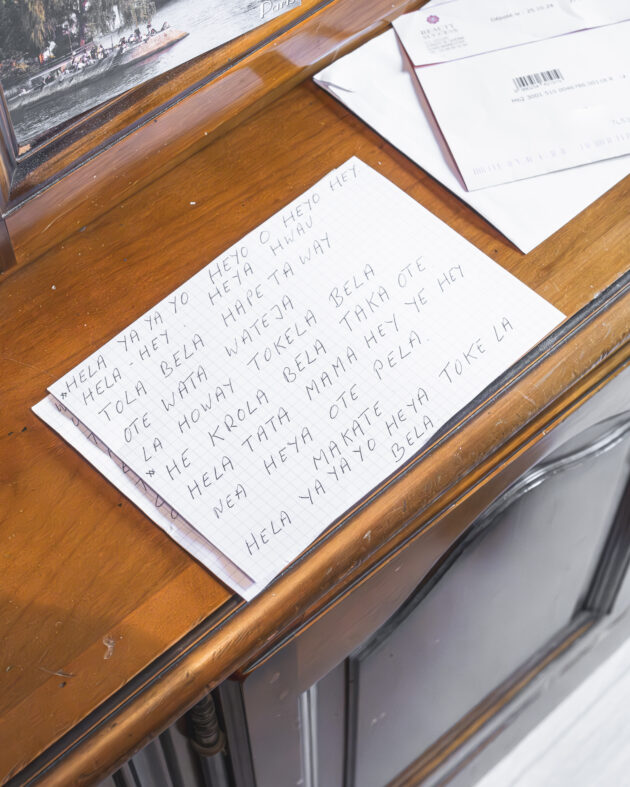 Paris
BEAUTY SUCCESS
HELA YA YA YO HEYO O HEYO HEY
HELA-HEY. HEYA HWAU
TOLA BELA HAPE TA WAY
OTE WATA WATEJA
LA HOWAY TOKELA BELA
HE KROLA BELA TAKA OTE
HELA TATA MAMA HEY YE HEY
NEA HEYA OTE PELA.
MAKATE
HELA YA YA YO HEYA TOKE LA
BELA